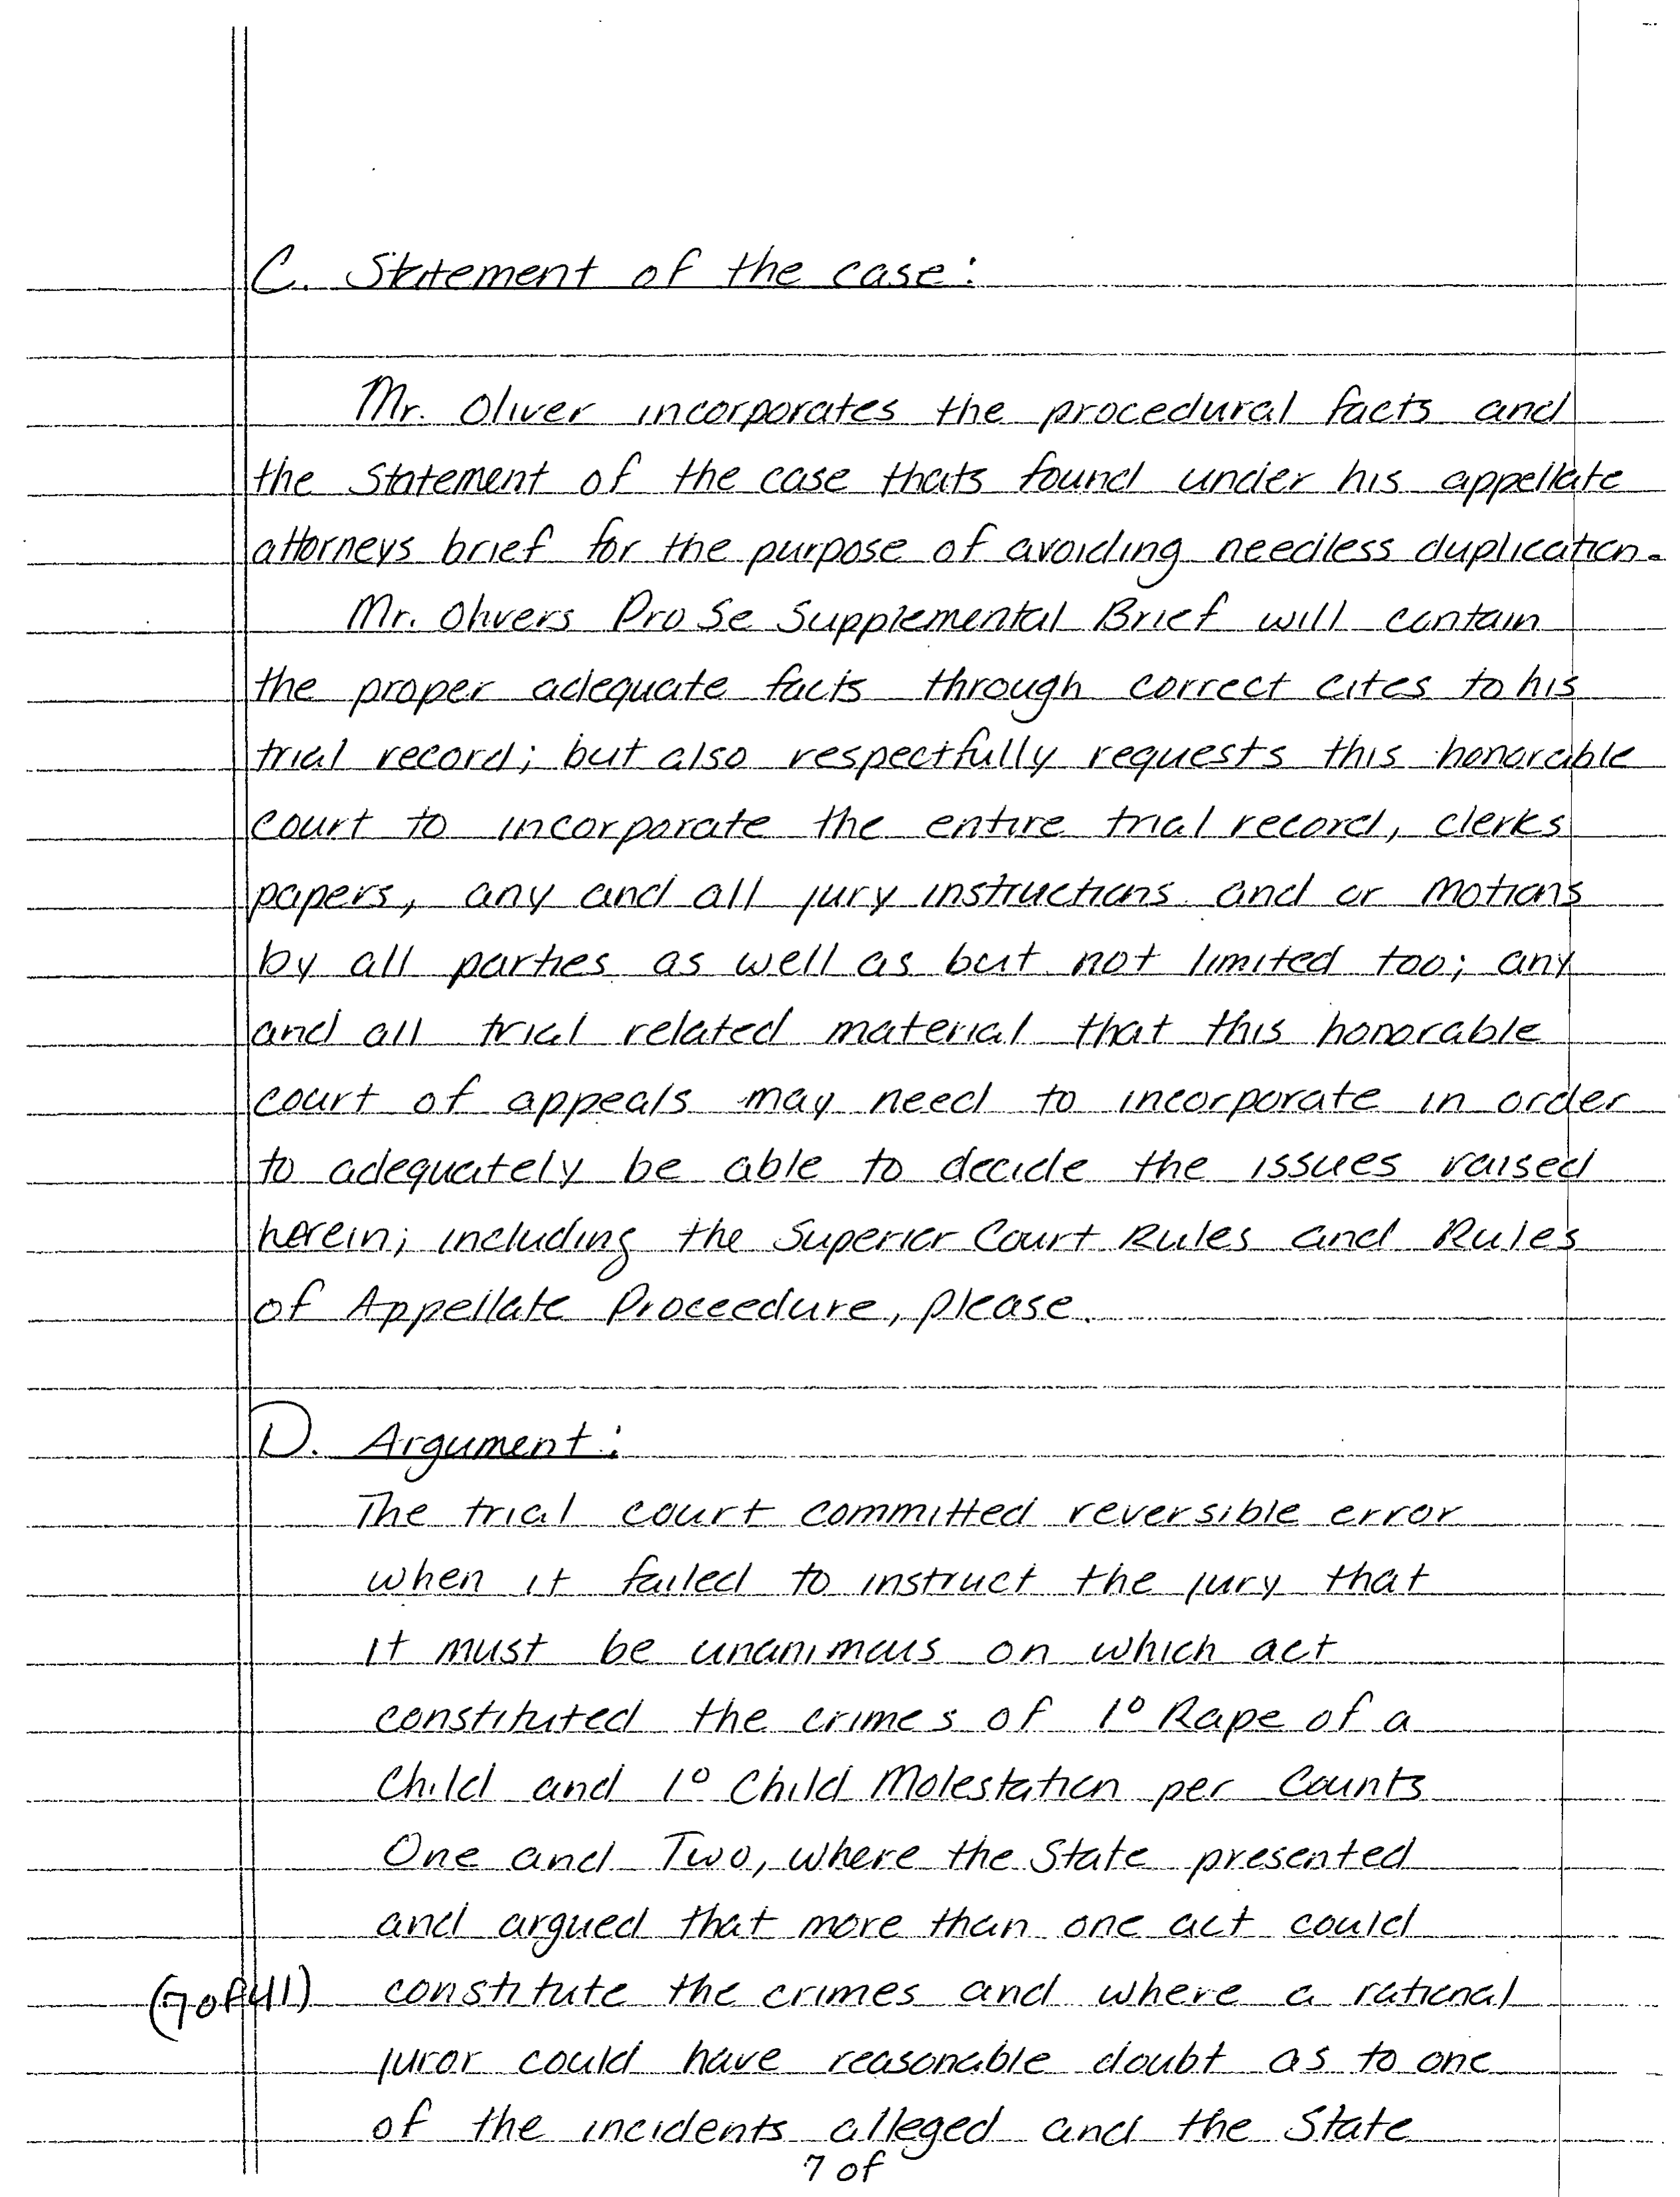 C. Statement of the case:
Mr. Oliver incorporates the procedural facts and
the Statement of the case thats found under his appellate
attorneys brief for the purpose of avoiding needless duplication.
Mr. Olivers Pro Se Supplemental Brief will contain
the proper adequate facts through correct cites to his
trial record; but also respectfully requests this honorable
court to incorporate the entire trial record, clerks
papers, any and all jury instructions and or motions
by all parties as well as but not limited too; any
and all trial related material that this honorable
court of appeals may need to incorporate in order
to adequately be able to decide the issues raised
herein; including the Superior Court Rules and Rules
of Appellate Proceedure, please.
D. Argument:
The trial court committed reversible error
when it failed to instruct the jury that
it must be unanimous on which act
constituted the crimes of 1° Rape of a
Child and 1° Child Molestation per Counts
One and Two, where the State presented
and argued that more than one act could
(7 of 41) constitute the crimes and where a rational
juror could have reasonable doubt as to one
of the incidents alleged and the State
7 of